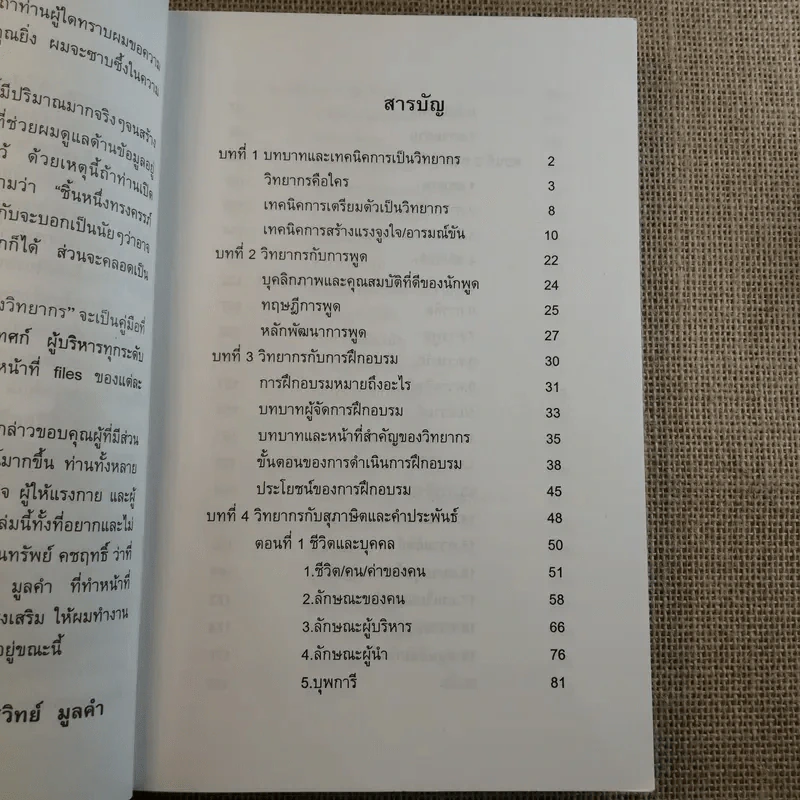 ถ้าท่านผู้ใดทราบผมขอความ
คุณยิ่ง ผมจะซาบซึ้งในความ
มีปริมาณมากจริงๆจนสร้าง
ที่ช่วยผมดูแลด้านข้อมูลอยู่
ด้วยเหตุนี้ถ้าท่านเปิด
ามว่า "ชิ้นหนึ่งทรงครรภ์
กับจะบอกเป็นนัยๆว่าอาจ
กก็ได้ ส่วนจะคลอดเป็น
งวิทยากร" จะเป็นคู่มือที่
ทศก์ ผู้บริหารทุกระดับ
หน้าที่ files ของแต่ละ
กล่าวขอบคุณผู้ที่มีส่วน
มากขึ้น ท่านทั้งหลาย
จ ผู้ให้แรงกาย และผู้
ล่มนี้ทั้งที่อยากและไม่
นทรัพย์ คชฤทธิ์ ว่าที่
มูลคำ ที่ทำหน้าที่
งเสริม ให้ผมทำงาน
อยู่ขณะนี้
วิทย์ มูลคำ
สารบัญ
บทที่ 1 บทบาทและเทคนิคการเป็นวิทยากร 2
วิทยากรคือใคร 3
เทคนิคการเตรียมตัวเป็นวิทยากร 8
เทคนิคการสร้างแรงจูงใจ/อารมณ์ขัน 10
บทที่ 2 วิทยากรกับการพูด 22
บุคลิกภาพและคุณสมบัติที่ดีของนักพูด 24
ทฤษฎีการพูด 25
หลักพัฒนาการพูด 27
บทที่ 3 วิทยากรกับการฝึกอบรม 30
การฝึกอบรมหมายถึงอะไร 31
บทบาทผู้จัดการฝึกอบรม 33
บทบาทและหน้าที่สำคัญของวิทยากร 35
ขั้นตอนของการดำเนินการฝึกอบรม 38
ประโยชน์ของการฝึกอบรม 45
บทที่ 4 วิทยากรกับสุภาษิตและคำประพันธ์ 48
ตอนที่ 1 ชีวิตและบุคคล 50
1.ชีวิต/คน/ค่าของคน 51
2.ลักษณะของคน 58
3.ลักษณะผู้บริหาร 66
4.ลักษณะผู้นำ 76
5.บุพการี 81